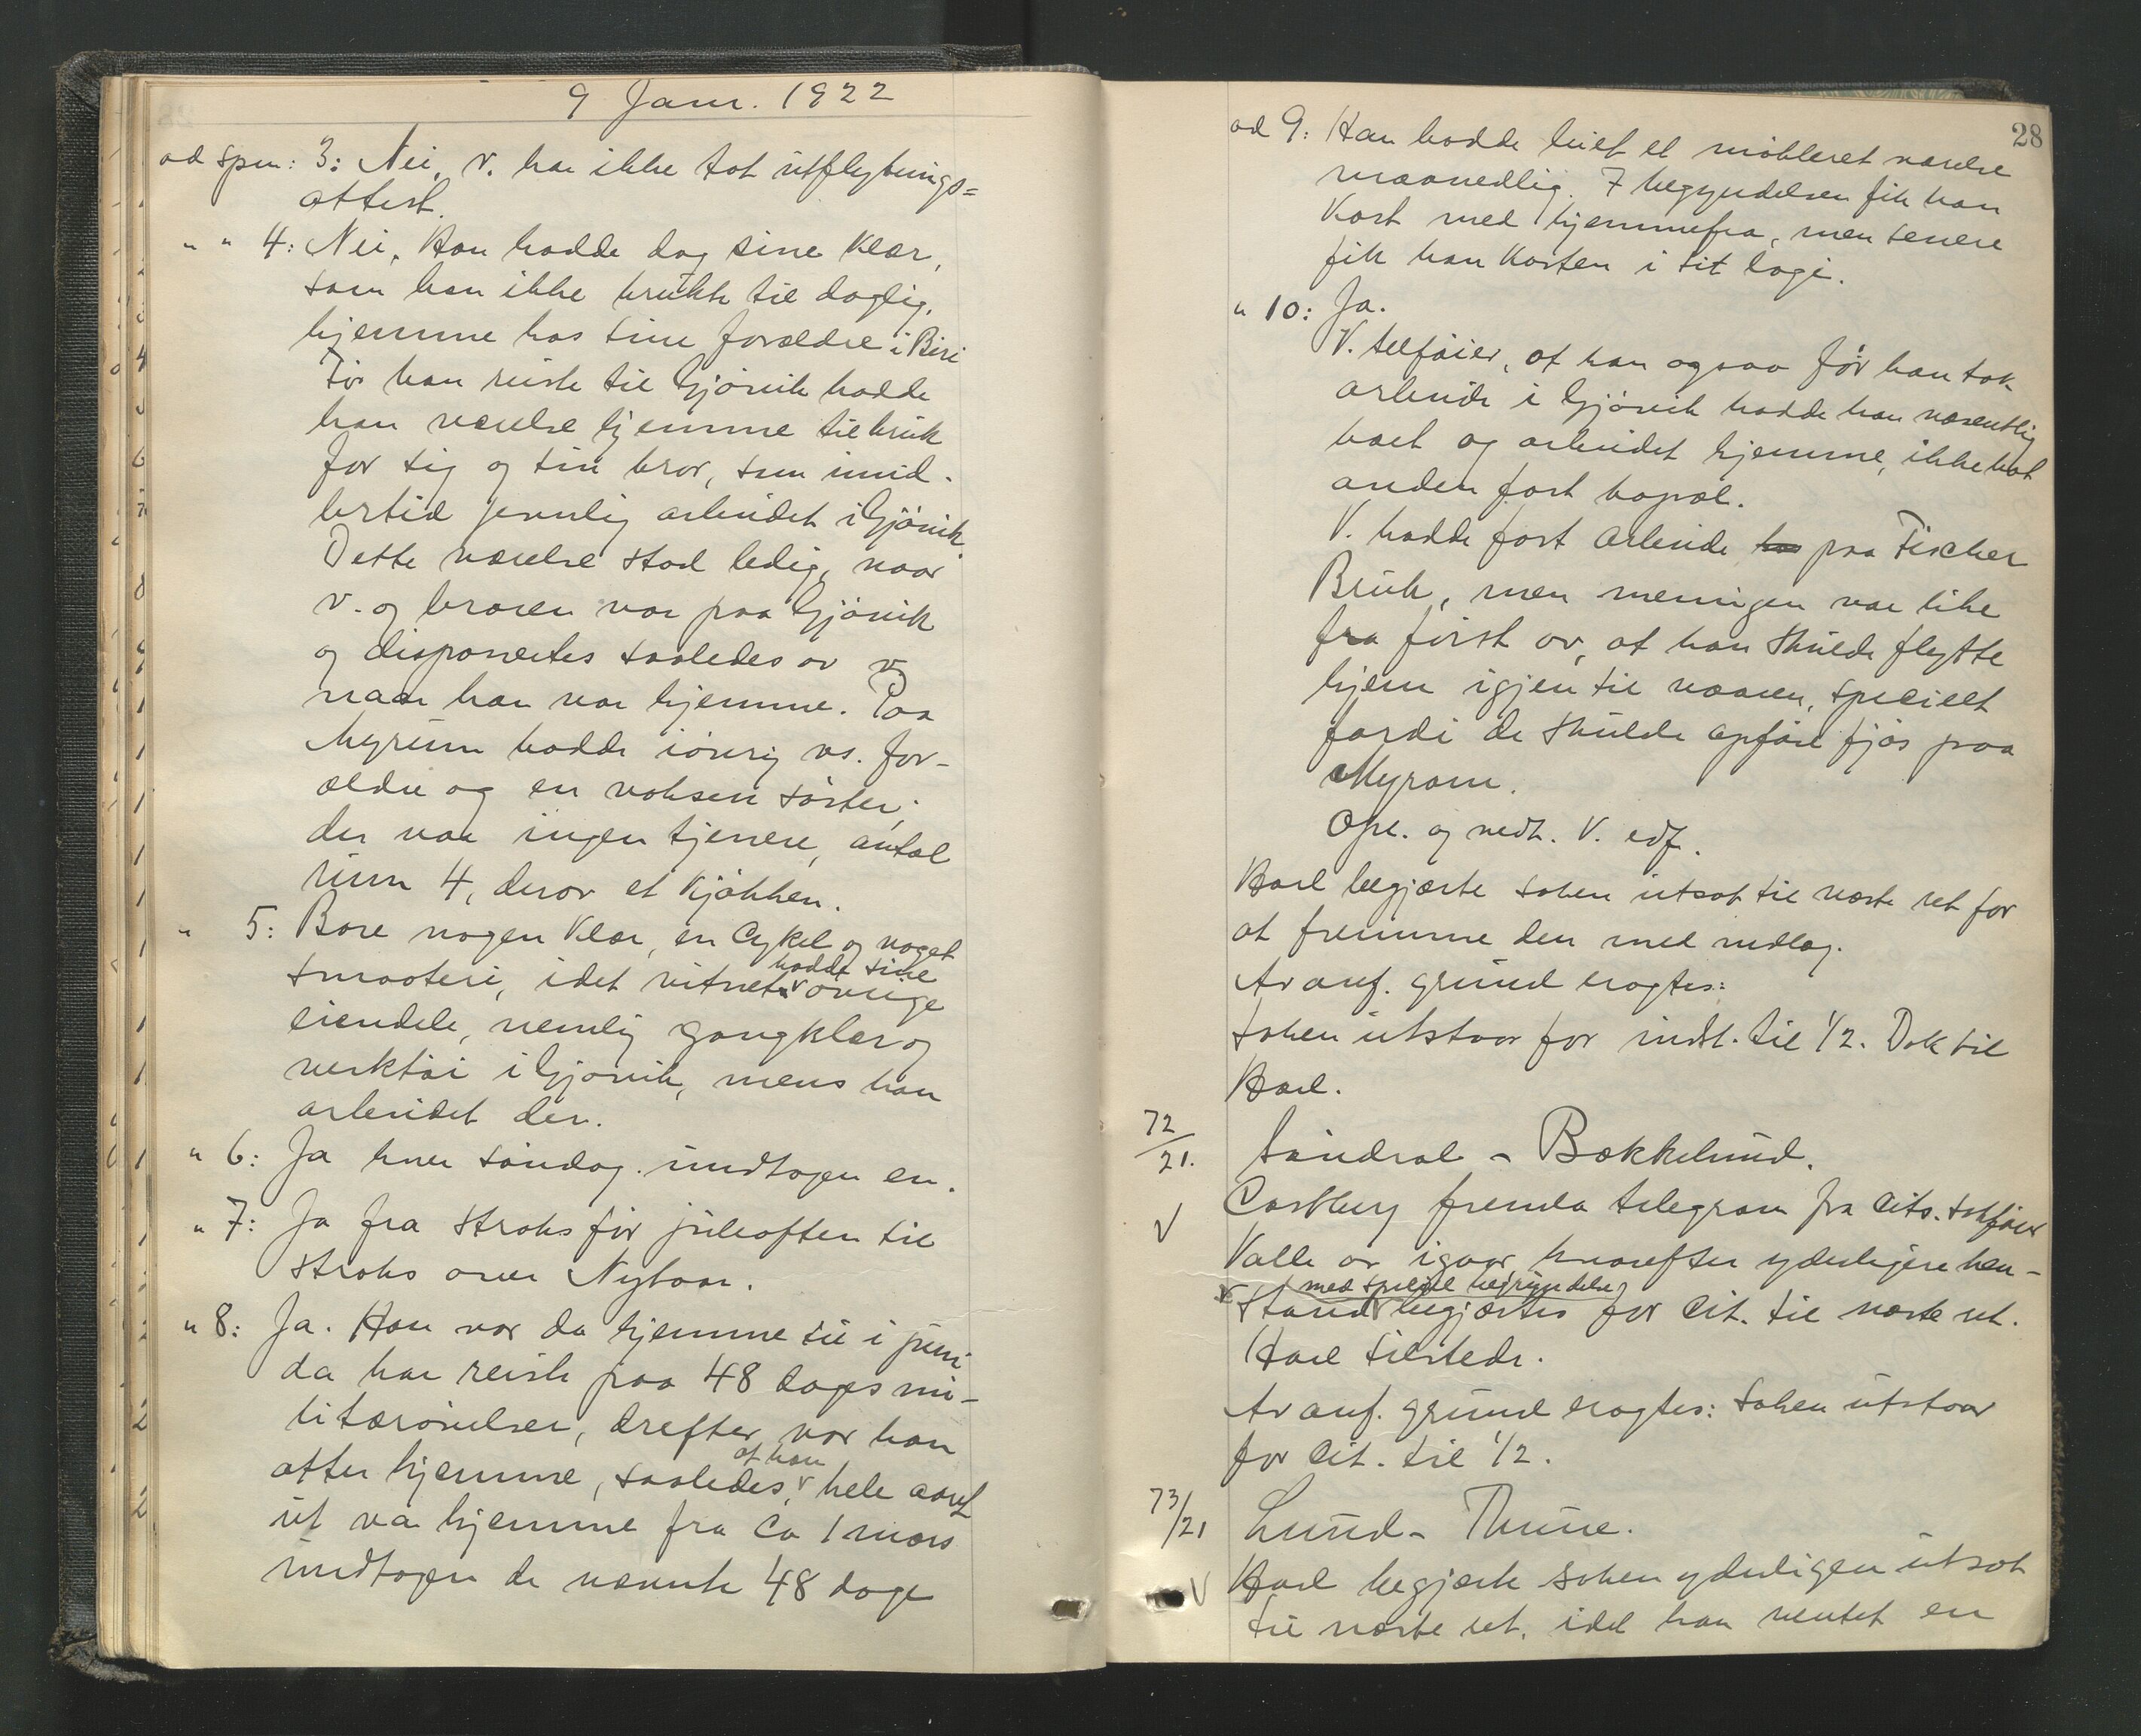 9 Janr. 1922
ad spm: 3: Nei, v. har ikke tat utflytnings=
attest.
" " 4: Nei. Han hadde dog sine klær,
som han ikke brukte til daglig,
hjemme hos sine forældre i Biri
Før han reiste til Gjøvik hadde
han værelse hjemme til bruk
for sig og sin bror, som imid-
lertid jevnlig arbeidet i Gjøvik.
Dette værelse stod ledig, naar
v. og broren var paa Gjøvik
og disponertes saaledes av v.
naar han var hjemme. Paa
Myrum hadde iøvrig vs. for-
ældre og en voksen søster;
der var ingen tjenere, antal
rum 4, derav et kjøkken.
" 5: Bare nogen klær, en cykel og noget
smaateri, idet vitnet hadde sine øvrige
eiendele, nemlig gangklær og
verktøi i Gjøvik, mens han
arbeidet der.
" 6: Ja hver søndag undtagen en.
" 7: Ja fra straks før juleaften til
straks over Nytaar.
" 8: Ja. Han var da hjemme til i juni
da han reiste paa 48 dages mi-
litærøvelser, derefter var han
atter hjemme, saaledes at han hele aaret
ut var hjemme fra ca 1 mars
undtagen de nævnte 48 dage
28
ad 9: Han hadde leiet et møbleret værelse
maanedlig. I begyndelsen fik han
kost med hjemmefra, men senere
fik han kosten i sit logi.
" 10: Ja.
V. tilføier, at han ogsaa før han tok
arbeide i Gjøvik hadde han væsentlig
boet og arbeidet hjemme, ikke hat
anden fast bopæl.
V. hadde fast arbeide hos paa Fischer
Bruk, men meningen var like
fra først av, at han skulde flytte
hjem igjen til vaaren, specielt
fordi de skulde opføre fjøs paa
Myrom.
Opl. og vedt. V. edf.
Hoel begjærte saken utsat til næste ret for
at fremme den med indlæg.
Av anf. grund eragtes:
Saken utstaar for indl. til 1/2. Dok til
Hoel.
72/21. Sündral - Bækkelund.
Castberg fremla telegram fra cits. sakfører
Valle av igaar, hvorefter yderligere hen-
stand med speciel begrundelse begjærtes for cit. til næste ret.
Hoel tilstede.
Av anf. grund eragtes: Saken utstaar
for cit. til 1/2.
73/21 Lund - Thune.
Hoel begjærte saken yderligere utsat
til næste ret, idet han ventet en